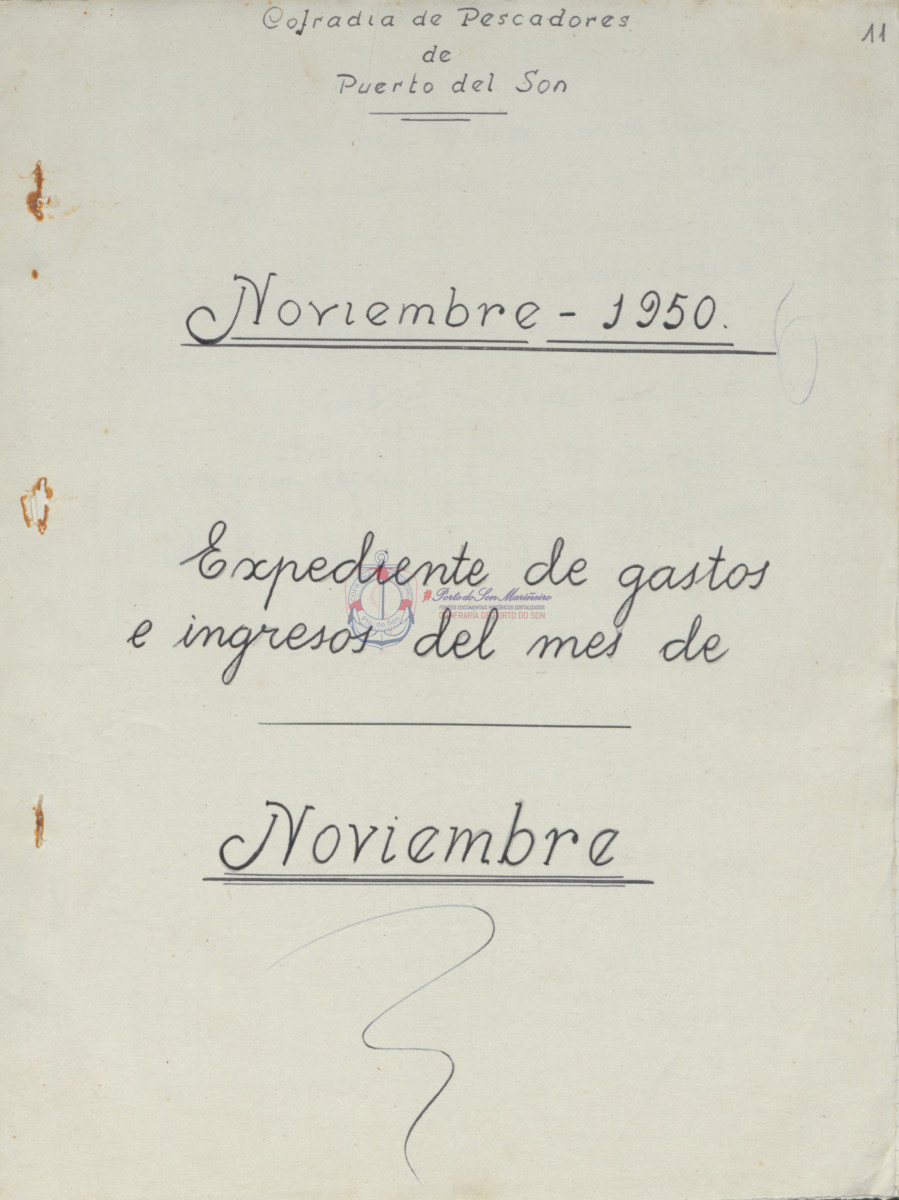 Cofradia de Pescadores
11
de
Puerto del Son
Noviembre - 1950.
6
Expediente de gastos
#Porto do Son Mariñeiro
FONDOS DOCUMENTAIS HISTÓRICOS DIXITALIZADOS
CONFRARÍA DE PORTO DO SON
e ingresos del mes de
Noviembre